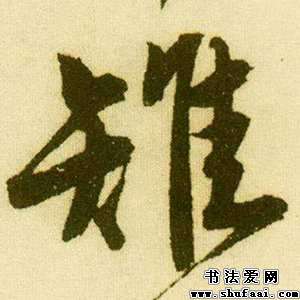 雉
书法爱网
www.shufaai.com